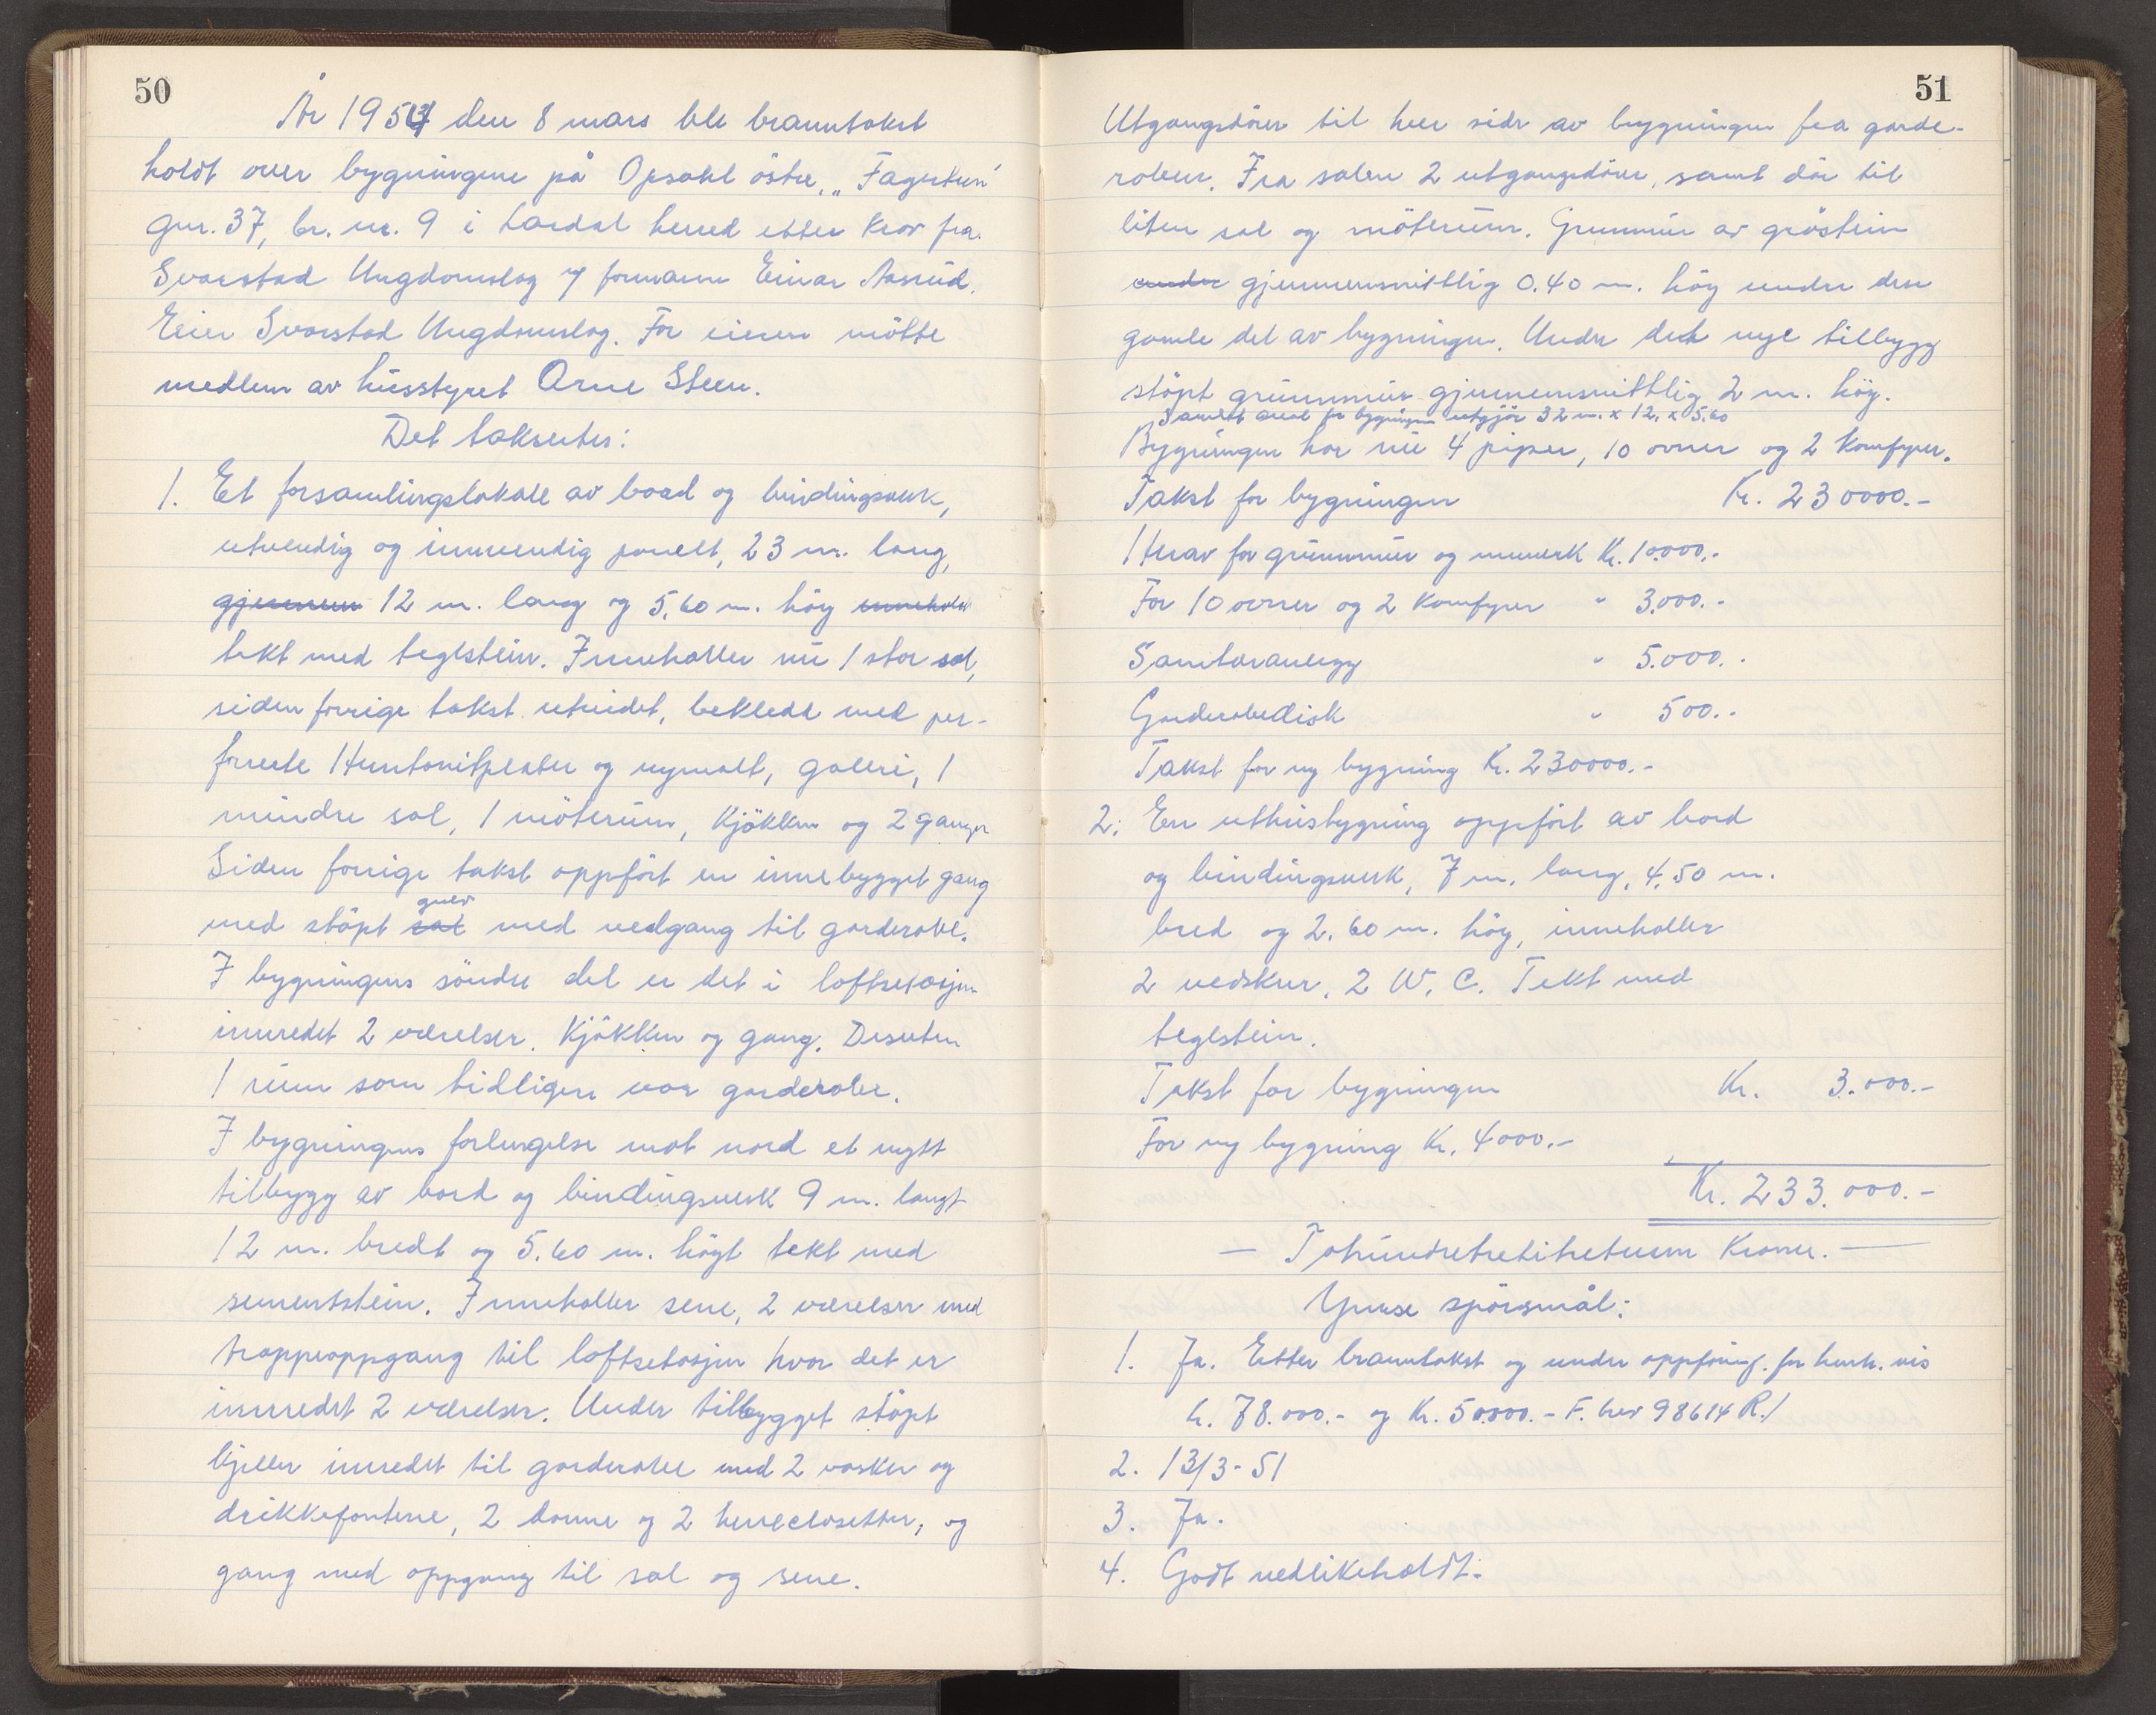 50
År 1954 den 8 mars ble branntakst
holdt over bygningene på Opsahl östre, „Fagertun"
gnr. 37, br. nr. 9 i Lardal herred etter krav fra
Svarstad Ungdomslag v/ formann Einar Aasrud.
Eier Svarstad Ungdomslag. For eieren mötte
medlem av husstyret Arne Steen.
Det takseres:
1. Et forsamlingslokale av bord og bindingsverk,
utvendig og innvendig panelt, 23 m. lang,
gjennem 12 m. lang og 5,60 m. höy inneholder
tekt med teglstein. Inneholler nu 1 stor sal,
siden forrige takst utvidet, bekledt med per-
forerte Huntonitplater og nymalt, galleri, 1
mindre sal, 1 möterum, kjökken og 2 ganger
Siden forrige takst oppfört en innebygget gang
gulv
med stöpt sal med nedgang til garderobe.
I bygningens söndre del er det i loftsetasjen
innredet 2 værelser. Kjökken og gang. Desuten
1 rum som tidligere var garderober.
I bygningens forlengelse mot nord et nytt
tilbygg av bord og bindingsverk 9 m. langt
12 m. bredt og 5.60 m. högt tekt med
sementstein. Inneholler sene, 2 værelser med
trappeoppgang til loftsetasjen hvor det er
innredet 2 værelser. Under tilbygget stöpt
kjeller innredet til garderobe med 2 vasker og
drikkefontene, 2 dame og 2 herreclosetter, og
gang med oppgang til sal og sene.
51
Utgangsdörer til hver side av bygningen fra garde-
roben. Fra salen 2 utgangsdörer, samt dör til
liten sal og möterum. Grunnmur av gråstein
under gjennemsnittlig 0.40 m. höy under den
gamle del av bygningen. Under det nye tilbygg
stöpt grunnmur gjennemsnittlig 2 m. höy.
Samlet areal for bygningen utgjör 32 m. x 12. x 5.60
Bygningen har nu 4 piper, 10 ovner og 2 komfyrer.
Takst for bygningen Kr. 230000.-
Herav for grunnmur og murverk Kr. 10.000.-
For 10 ovner og 2 komfyrer " 3.000.-
Sanitæranlegg " 5.000.-
Garderobedisk " 500.-
Takst for ny bygning Kr. 230000.-
2. En uthusbygning oppfört av bord
og bindingsverk, 7 m. lang, 4,50 m.
bred og 2.60 m. höy, inneholler
2 vedskur, 2 W. C. Tekt med
teglstein.
Takst for bygningen Kr. 3.000.-
For ny bygning Kr. 4000.-
Kr. 233.000.-
— Tohundretrettitretusen Kroner. —
Ymse spörsmål:
1. Ja. Etter branntakst og under oppföring. for henh. vis
kr. 78.000.- og Kr. 50000.- F. bev 98614 R./
2. 13/3-51
3. Ja.
4. Godt vedlikeholdt.